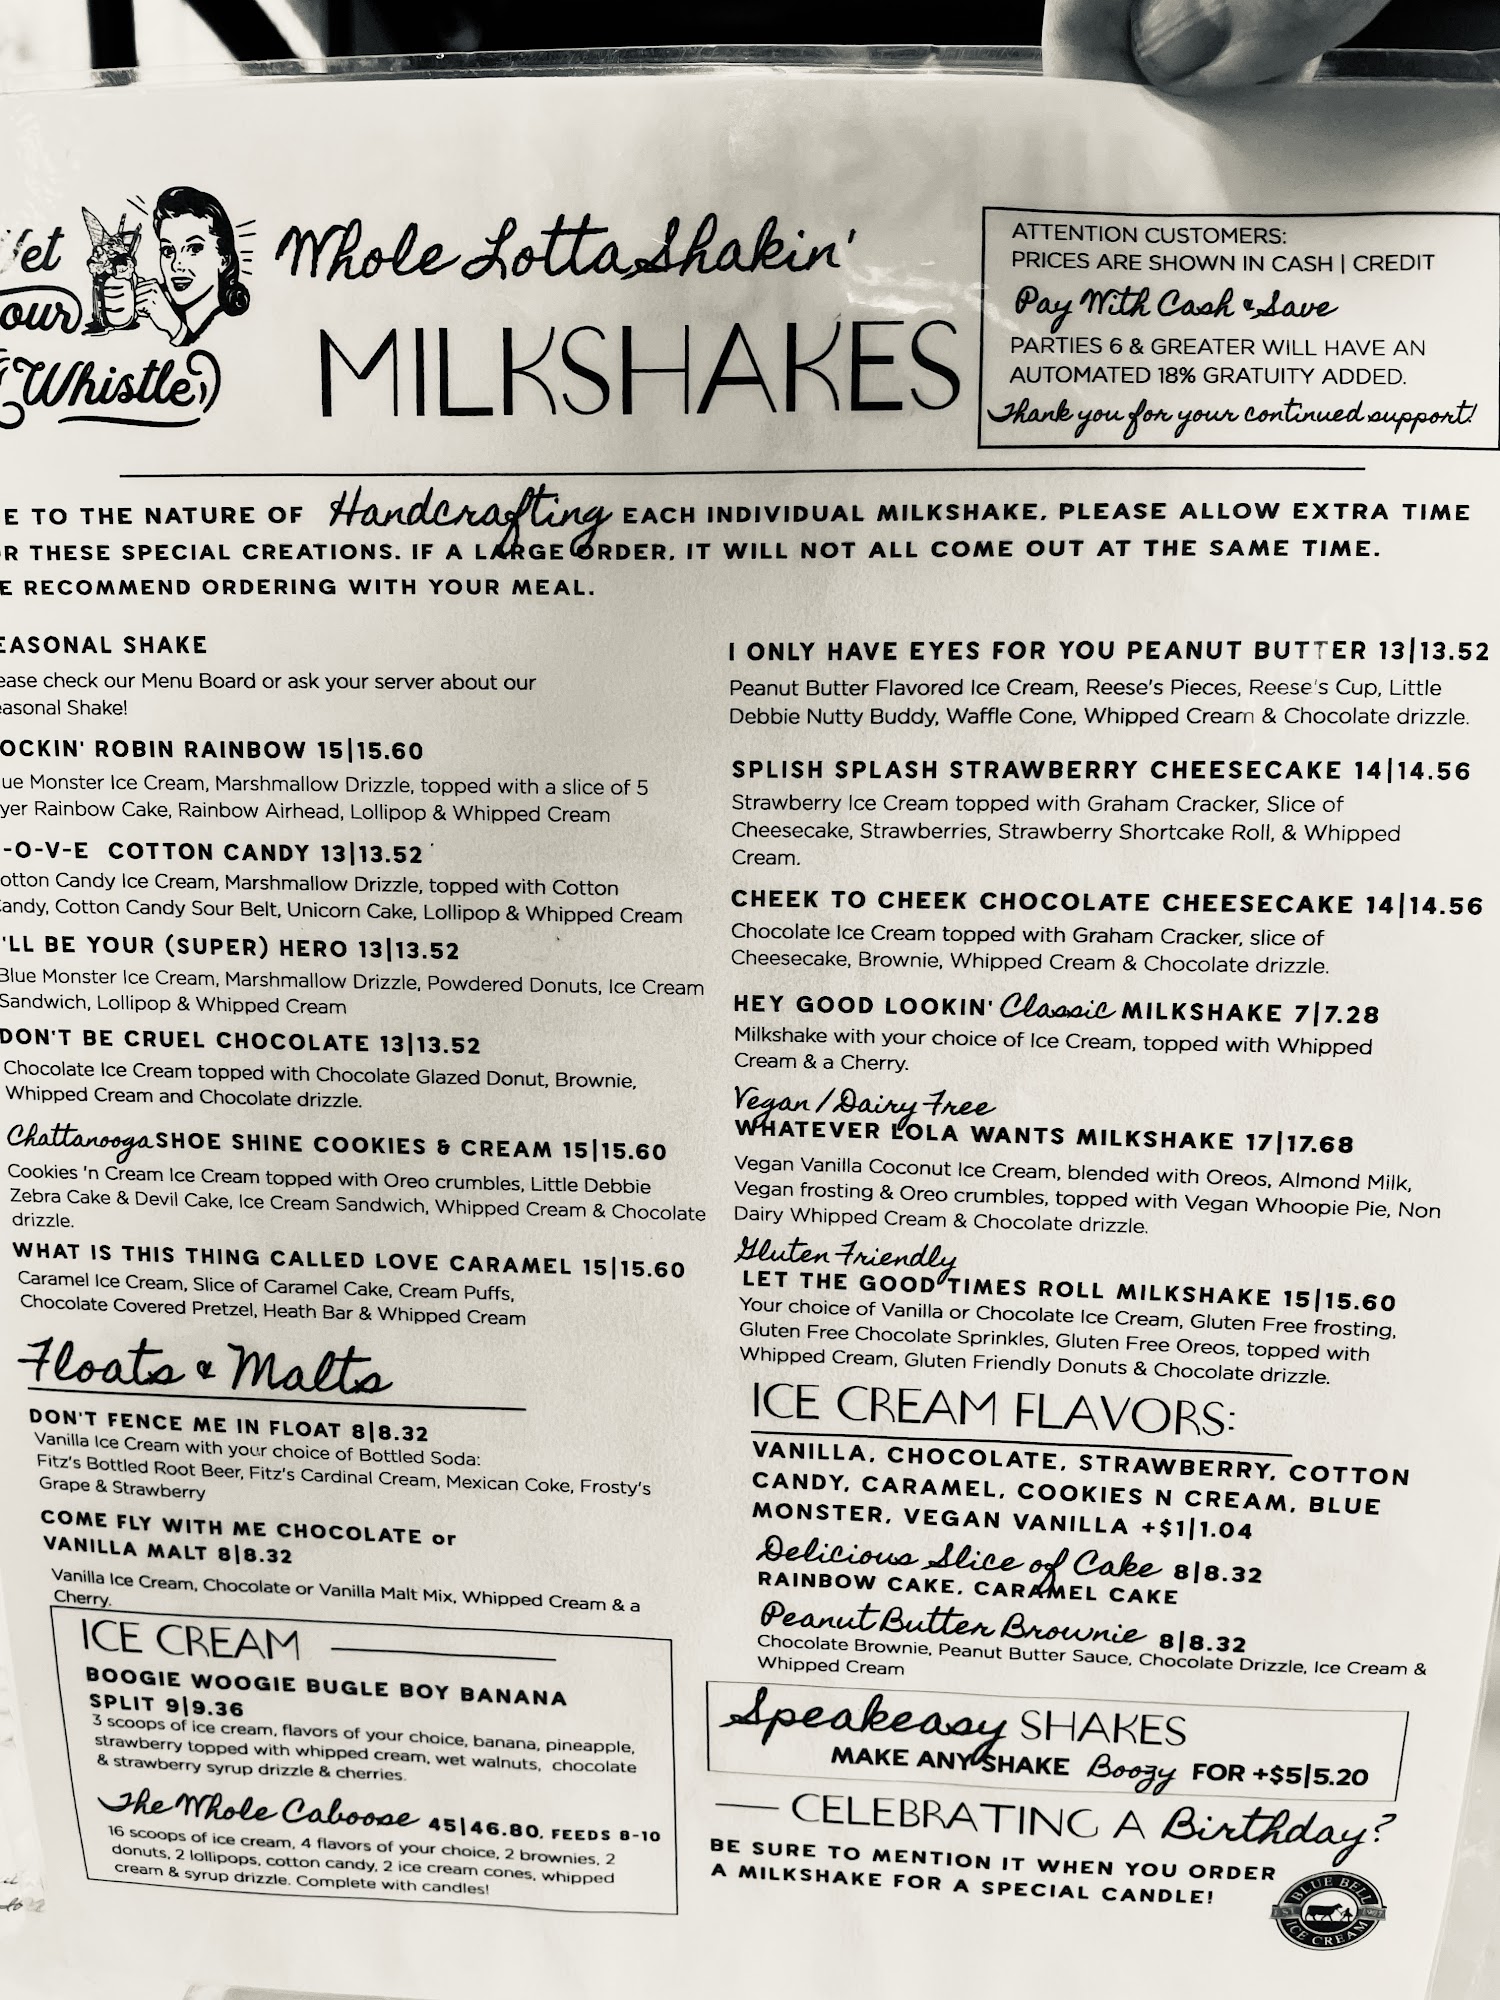 et
our
Whistle
Whole Lotta Shakin'
MILKSHAKES
ATTENTION CUSTOMERS:
PRICES ARE SHOWN IN CASH | CREDIT
Pay With Cash & Save
PARTIES 6 & GREATER WILL HAVE AN
AUTOMATED 18% GRATUITY ADDED.
Thank you for your continued support!
E TO THE NATURE OF Handcrafting EACH INDIVIDUAL MILKSHAKE, PLEASE ALLOW EXTRA TIME
R THESE SPECIAL CREATIONS. IF A LARGE ORDER, IT WILL NOT ALL COME OUT AT THE SAME TIME.
E RECOMMEND ORDERING WITH YOUR MEAL.
EASONAL SHAKE
ease check our Menu Board or ask your server about our
easonal Shake!
OCKIN' ROBIN RAINBOW 15|15.60
ue Monster Ice Cream, Marshmallow Drizzle, topped with a slice of 5
yer Rainbow Cake, Rainbow Airhead, Lollipop & Whipped Cream
-O-V-E COTTON CANDY 13|13.52
otton Candy Ice Cream, Marshmallow Drizzle, topped with Cotton
andy, Cotton Candy Sour Belt, Unicorn Cake, Lollipop & Whipped Cream
'LL BE YOUR (SUPER) HERO 13|13.52
Blue Monster Ice Cream, Marshmallow Drizzle, Powdered Donuts, Ice Cream
Sandwich, Lollipop & Whipped Cream
DON'T BE CRUEL CHOCOLATE 13|13.52
Chocolate Ice Cream topped with Chocolate Glazed Donut, Brownie,
Whipped Cream and Chocolate drizzle.
Chattanooga SHOE SHINE COOKIES & CREAM 15|15.60
Cookies 'n Cream Ice Cream topped with Oreo crumbles, Little Debbie
Zebra Cake & Devil Cake, Ice Cream Sandwich, Whipped Cream & Chocolate
drizzle.
WHAT IS THIS THING CALLED LOVE CARAMEL 15|15.60
Caramel Ice Cream, Slice of Caramel Cake, Cream Puffs,
Chocolate Covered Pretzel, Heath Bar & Whipped Cream
Floats & Malts
DON'T FENCE ME IN FLOAT 8|8.32
Vanilla Ice Cream with your choice of Bottled Soda:
Fitz's Bottled Root Beer, Fitz's Cardinal Cream, Mexican Coke, Frosty's
Grape & Strawberry
COME FLY WITH ME CHOCOLATE or
VANILLA MALT 8|8.32
Vanilla Ice Cream, Chocolate or Vanilla Malt Mix, Whipped Cream & a
Cherry.
ICE CREAM
BOOGIE WOOGIE BUGLE BOY BANANA
SPLIT 9|9.36
3 scoops of ice cream, flavors of your choice, banana, pineapple,
strawberry topped with whipped cream, wet walnuts, chocolate
& strawberry syrup drizzle & cherries.
The Whole Caboose 45|46.80, FEEDS 8-10
16 scoops of ice cream, 4 flavors of your choice, 2 brownies, 2
donuts, 2 lollipops, cotton candy, 2 ice cream cones, whipped
cream & syrup drizzle. Complete with candles!
I ONLY HAVE EYES FOR YOU PEANUT BUTTER 13|13.52
Peanut Butter Flavored Ice Cream, Reese's Pieces, Reese's Cup, Little
Debbie Nutty Buddy, Waffle Cone, Whipped Cream & Chocolate drizzle.
SPLISH SPLASH STRAWBERRY CHEESECAKE 14|14.56
Strawberry Ice Cream topped with Graham Cracker, Slice of
Cheesecake, Strawberries, Strawberry Shortcake Roll, & Whipped
Cream.
CHEEK TO CHEEK CHOCOLATE CHEESECAKE 14|14.56
Chocolate Ice Cream topped with Graham Cracker, slice of
Cheesecake, Brownie, Whipped Cream & Chocolate drizzle.
HEY GOOD LOOKIN' Classic MILKSHAKE 7|7.28
Milkshake with your choice of Ice Cream, topped with Whipped
Cream & a Cherry.
Vegan / Dairy Free
WHATEVER LOLA WANTS MILKSHAKE 17|17.68
Vegan Vanilla Coconut Ice Cream, blended with Oreos, Almond Milk,
Vegan frosting & Oreo crumbles, topped with Vegan Whoopie Pie, Non
Dairy Whipped Cream & Chocolate drizzle.
Gluten Friendly
LET THE GOOD TIMES ROLL MILKSHAKE 15|15.60
Your choice of Vanilla or Chocolate Ice Cream, Gluten Free frosting,
Gluten Free Chocolate Sprinkles, Gluten Free Oreos, topped with
Whipped Cream, Gluten Friendly Donuts & Chocolate drizzle.
ICE CREAM FLAVORS:
VANILLA, CHOCOLATE, STRAWBERRY, COTTON
CANDY, CARAMEL, COOKIES N CREAM, BLUE
MONSTER, VEGAN VANILLA +$1|1.04
Delicious Slice of Cake 8|8.32
RAINBOW CAKE, CARAMEL CAKE
Peanut Butter Brownie 8|8.32
Chocolate Brownie, Peanut Butter Sauce, Chocolate Drizzle, Ice Cream &
Whipped Cream
Speakeasy SHAKES
MAKE ANY SHAKE Boozy FOR +$5|5.20
CELEBRATING A Birthday?
BE SURE TO MENTION IT WHEN YOU ORDER
A MILKSHAKE FOR A SPECIAL CANDLE!
BLUE BELL
EST. 1907
ICE CREAM